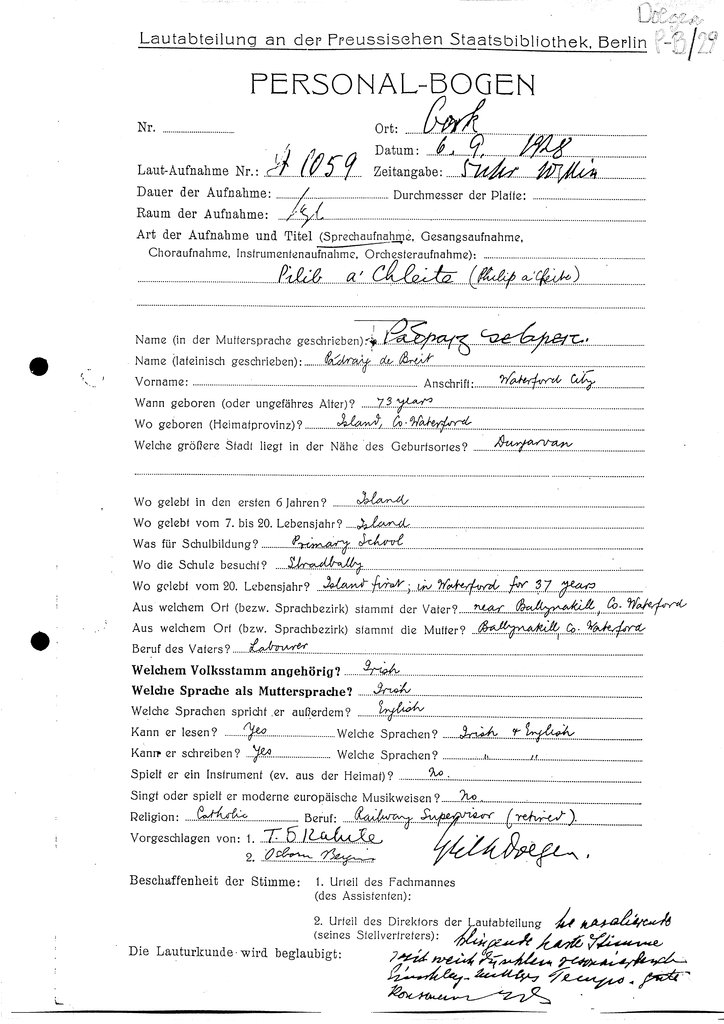 Doegen
P-B/29
Lautabteilung an der Preussischen Staatsbibliothek, Berlin
PERSONAL-BOGEN
Nr. Ort: Cork
Datum: 6. 9. 1928
Laut-Aufnahme Nr.: 1059 Zeitangabe: 5 Uhr Min
Dauer der Aufnahme: Durchmesser der Platte:
Raum der Aufnahme:
Art der Aufnahme und Titel (Sprechaufnahme, Gesangsaufnahme,
Choraufnahme, Instrumentenaufnahme, Orchesteraufnahme):
Pilib a' Chleite (Philip a'Cleite)
Name (in der Muttersprache geschrieben):
Name (lateinisch geschrieben): Pádraig de Breit
Vorname: Anschrift: Waterford City
Wann geboren (oder ungefähres Alter)? 73 years
Wo geboren (Heimatprovinz)? Island, Co. Waterford
Welche größere Stadt liegt in der Nähe des Geburtsortes? Dungarvan
Wo gelebt in den ersten 6 Jahren? Island
Wo gelebt vom 7. bis 20. Lebensjahr? Island
Was für Schulbildung? Primary School
Wo die Schule besucht? Stradbally
Wo gelebt vom 20. Lebensjahr? Island first; in Waterford for 37 years
Aus welchem Ort (bezw. Sprachbezirk) stammt der Vater? near Ballynakill, Co. Waterford
Aus welchem Ort (bezw. Sprachbezirk) stammt die Mutter? Ballynakill, Co. Waterford
Beruf des Vaters? Labourer
Welchem Volksstamm angehörig? Irish
Welche Sprache als Muttersprache? Irish
Welche Sprachen spricht er außerdem? English
Kann er lesen? Yes Welche Sprachen? Irish & English
Kann er schreiben? Yes Welche Sprachen? " "
Spielt er ein Instrument (ev. aus der Heimat)? No.
Singt oder spielt er moderne europäische Musikweisen? No.
Religion: Catholic Beruf: Railway Supervisor (retired).
Vorgeschlagen von: 1. T. Ó Rahille
2. Osborn Bergin Wilh Doegen.
Beschaffenheit der Stimme: 1. Urteil des Fachmannes
(des Assistenten):
2. Urteil des Direktors der Lautabteilung
(seines Stellvertreters): klingende harte Stimme
Die Lauturkunde wird beglaubigt: mit weich dunklem
Tempo. gute